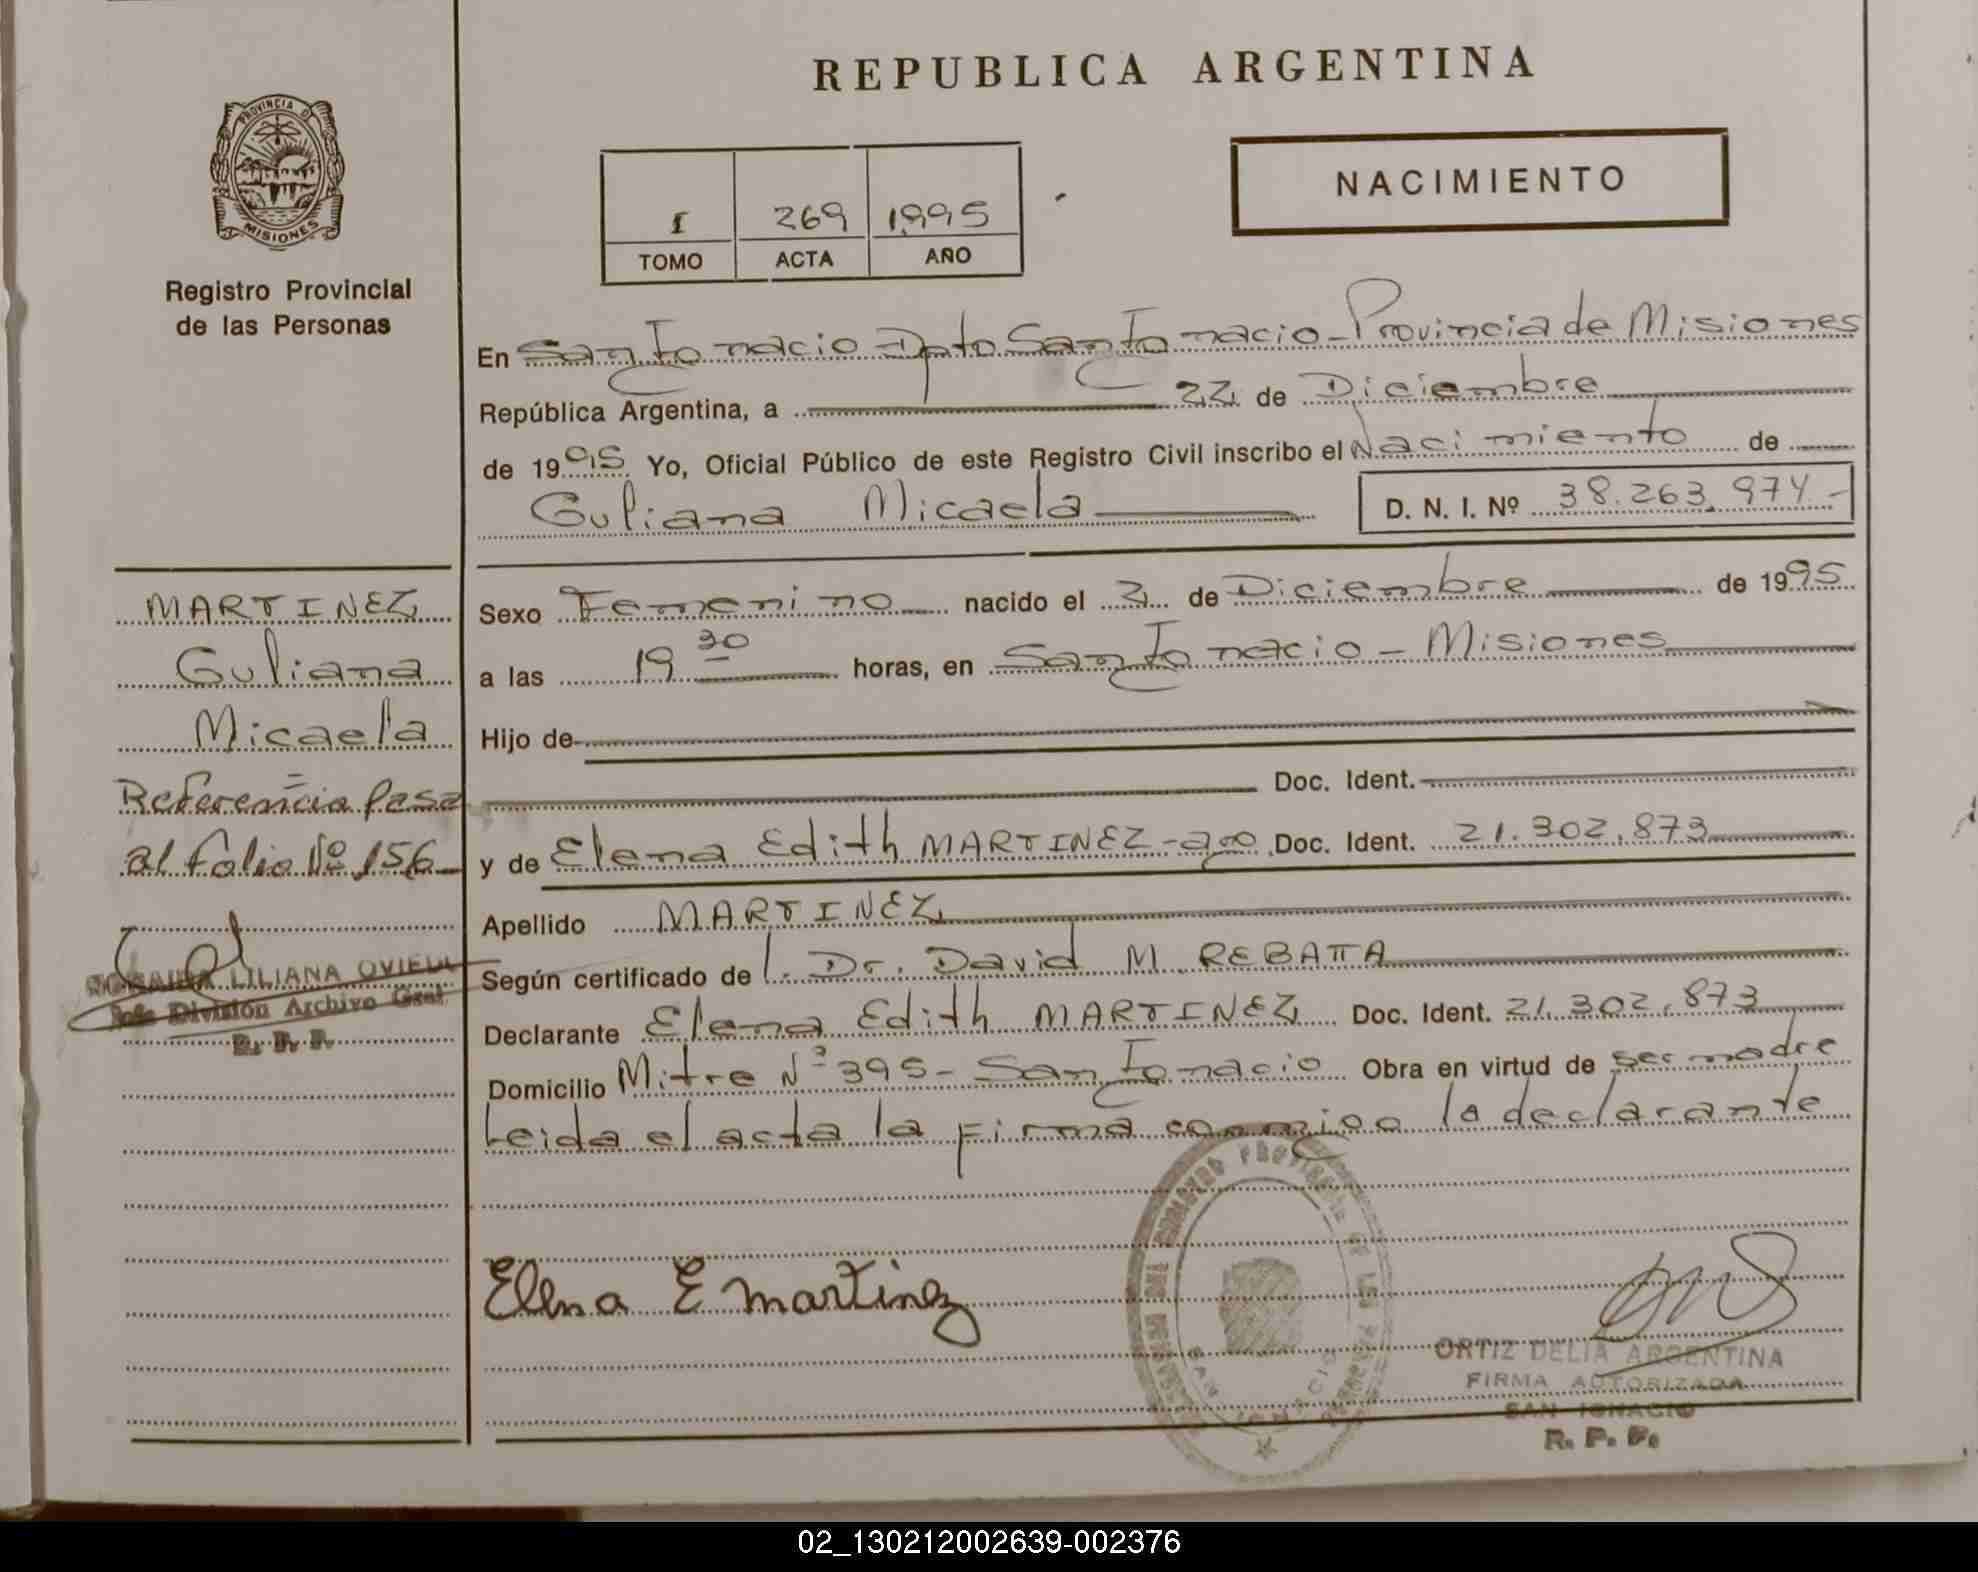 REPUBLICA ARGENTINA
PROVINCIA D
MISIONES
Registro Provincial
de las Personas
I 269 1995
TOMO ACTA AÑO
NACIMIENTO
En San Ignacio Dpto San Ignacio - Provincia de Misiones
República Argentina, a 22 de Diciembre
de 1995 Yo, Oficial Público de este Registro Civil inscribo el Nacimiento de
Guliana Micaela
D. N. I. Nº 38.263.974.-
MARTINEZ
Guliana
Micaela
Referencia pasa
al folio Nº 156
LILIANA OVIEDO
Jefe División Archivo Gral
R. P. P.
Sexo Femenino nacido el 2 de Diciembre de 1995
a las 19 30 horas, en San Ignacio - Misiones
Hijo de
Doc. Ident.
y de Elena Edith MARTINEZ - Doc. Ident. 21.302.873
Apellido MARTINEZ
Según certificado de l. Dr. David M. REBATTA
Declarante Elena Edith MARTINEZ Doc. Ident. 21.302.873
Domicilio Mitre Nº 395 - San Ignacio Obra en virtud de ser madre
Leida el acta la firma conmigo la declarante
Elena E Martinez
SAN IGNACIO
ORTIZ DELIA ARGENTINA
FIRMA AUTORIZADA
SAN IGNACIO
R. P. P.
02_130212002639-002376